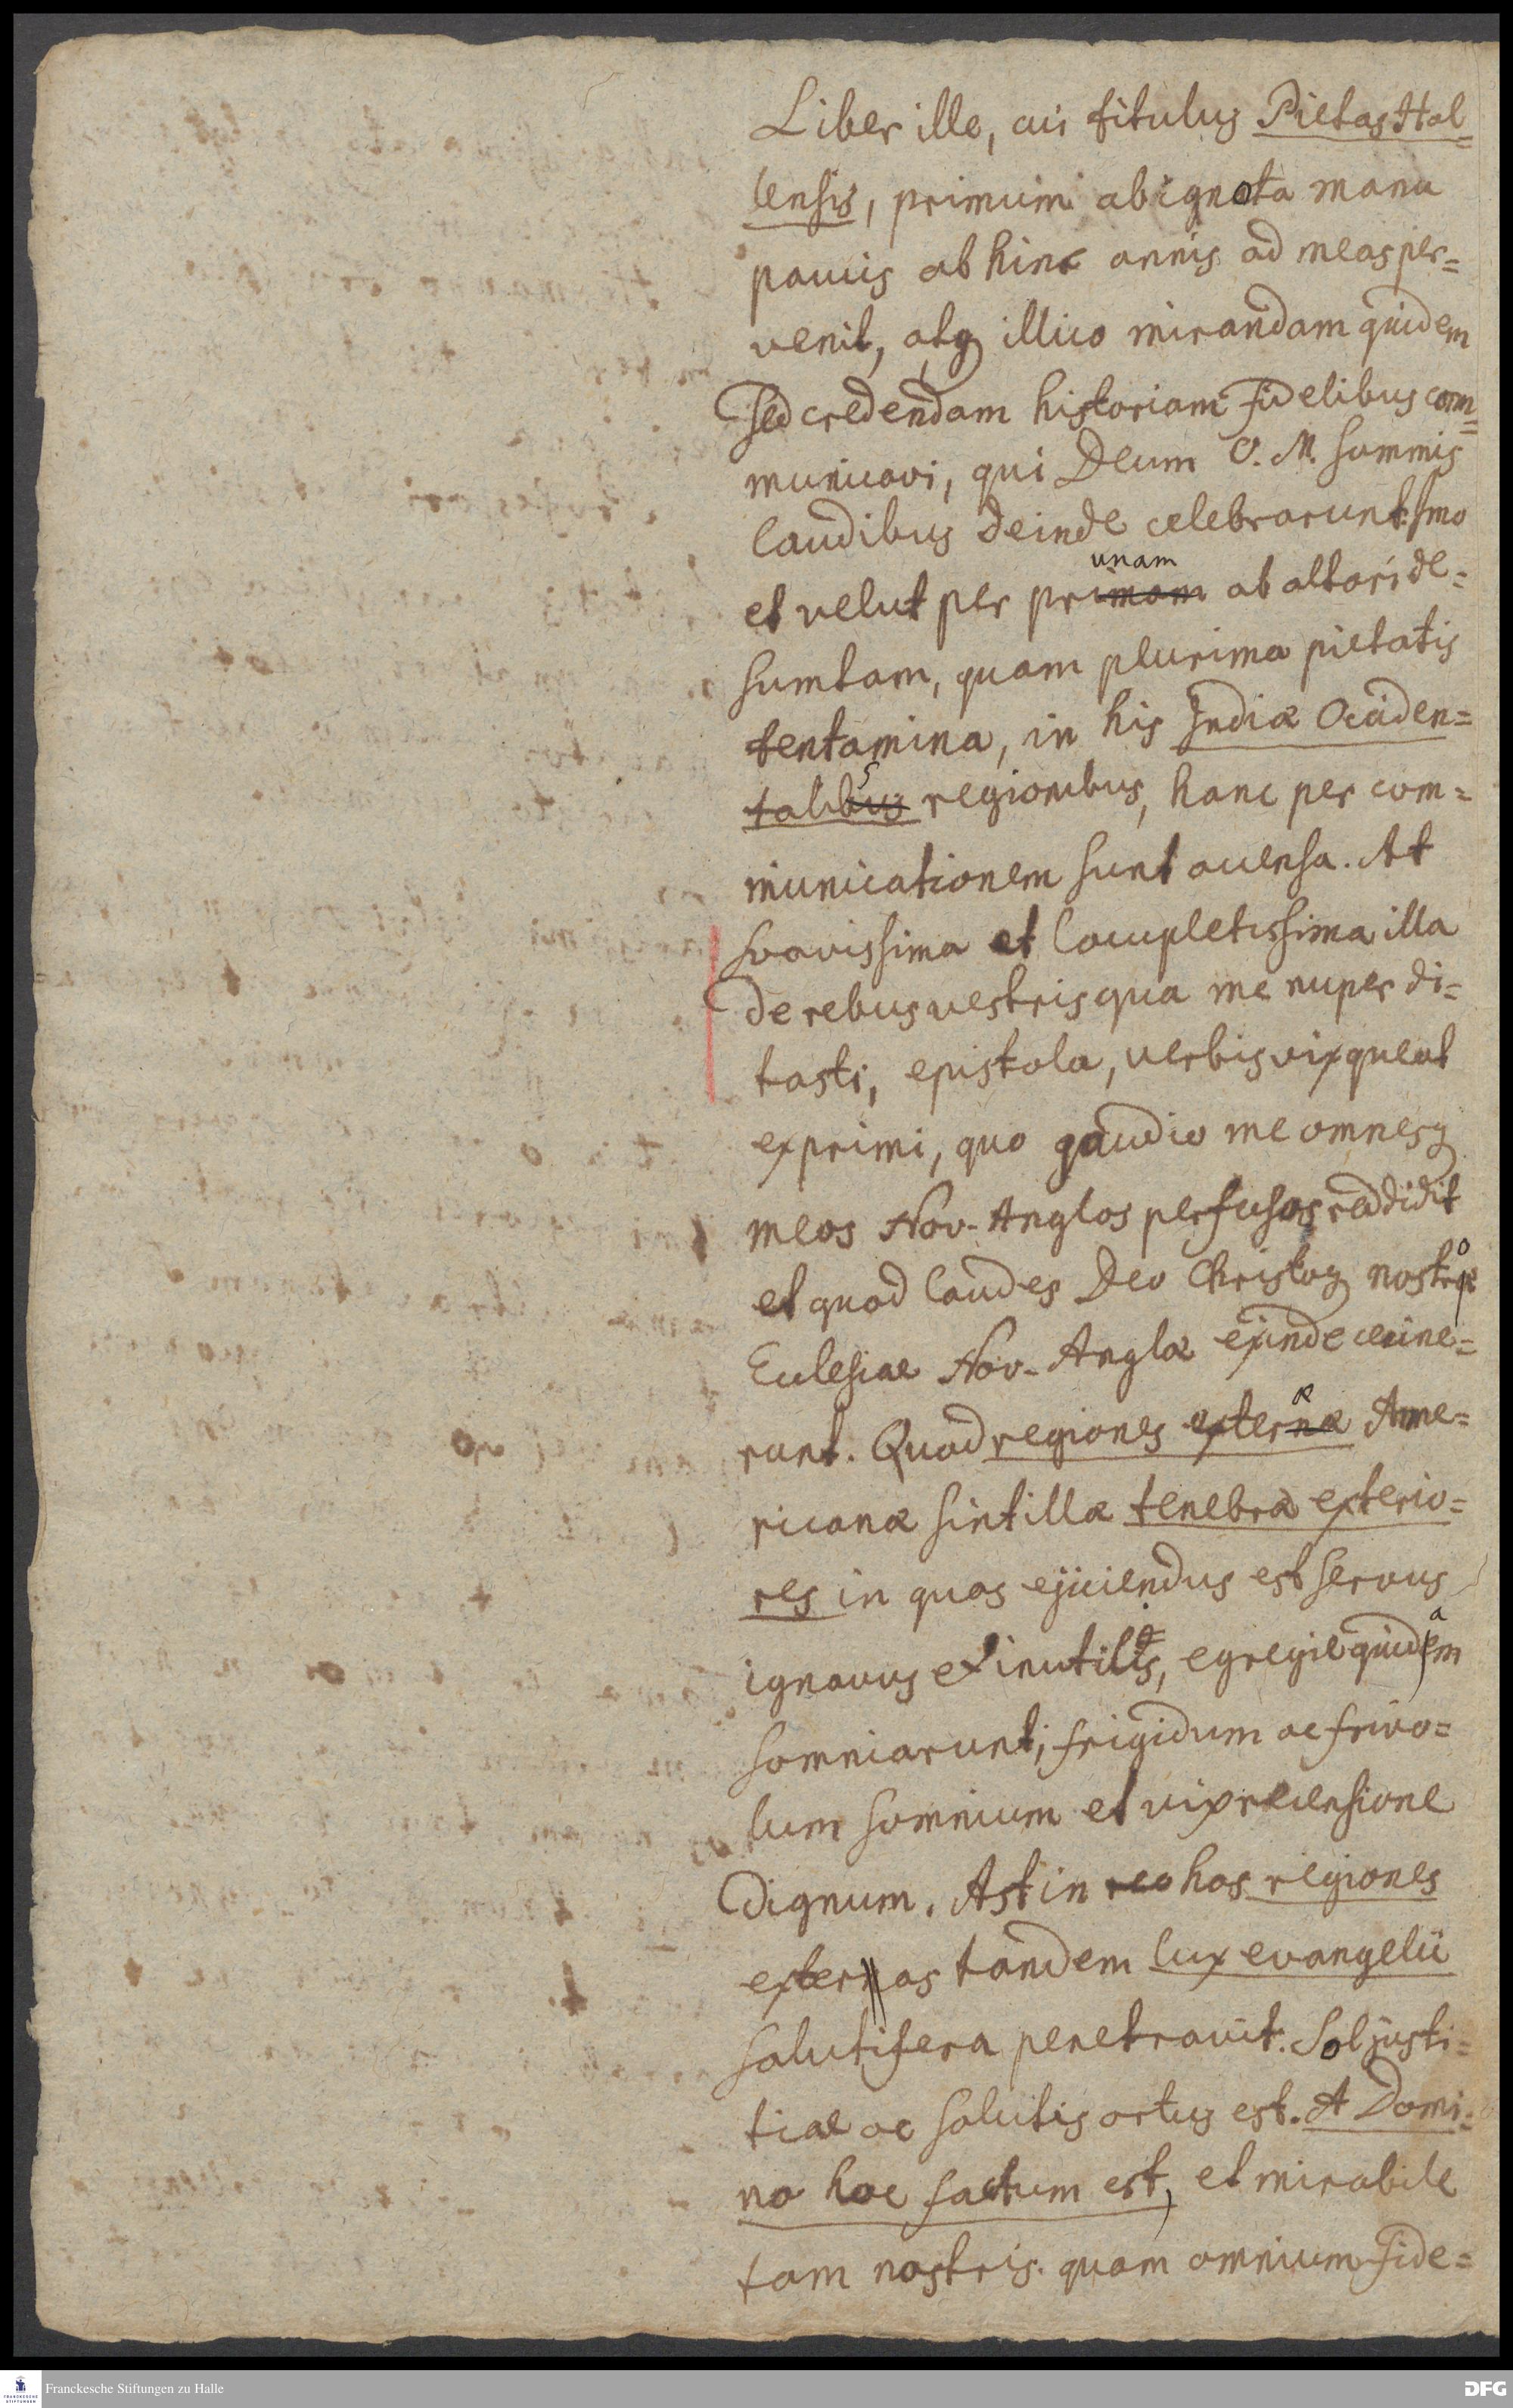 Liber ille, cui titulus Pietas Hal=
lensis, primum ab ignota manu
paucis ab hinc annis ad meas per=
venit, atq illico mirandam quidem
sed credendam historiam fidelibus com=
municavi, qui Deum O. M. summis
laudibus deinde celebrarunt. Imo
unam
et velut per primam ab altari de=
sumtam, quam plurima pietatis
tentamina, in his Indiæ Occiden=
talibus regionibus, hanc per com=
municationem sunt accensa. At
svavissima et locupletissima illa
de rebus vestris qua me nuper di=
tasti, epistola, verbis vix queat
exprimi, quo gaudio me omnesq
meos Nov-Anglos perfusos reddidit
et quod laudes Deo Christoq nostro
Ecclesiae Nov-Anglæ exinde cecine=
runt. Quod regiones externæ Ame=
ricanæ sint illæ tenebræ exterio=
res in quas ejiciendus est servus
ignavus et inutilis, egregie quidam
somniarunt; frigidum ac frivo=
lum somnium et vix recensione
dignum. Ast in reo has regiones
externas tandem lux evangelii
salutifera penetravit. Sol justi=
tiae ac salutis ortus est. A Domi=
no hoc factum est, et mirabile
tam nostris quam omnium fide=
Franckesche Stiftungen zu Halle
FRANCKESCHE STIFTUNGEN
DFG